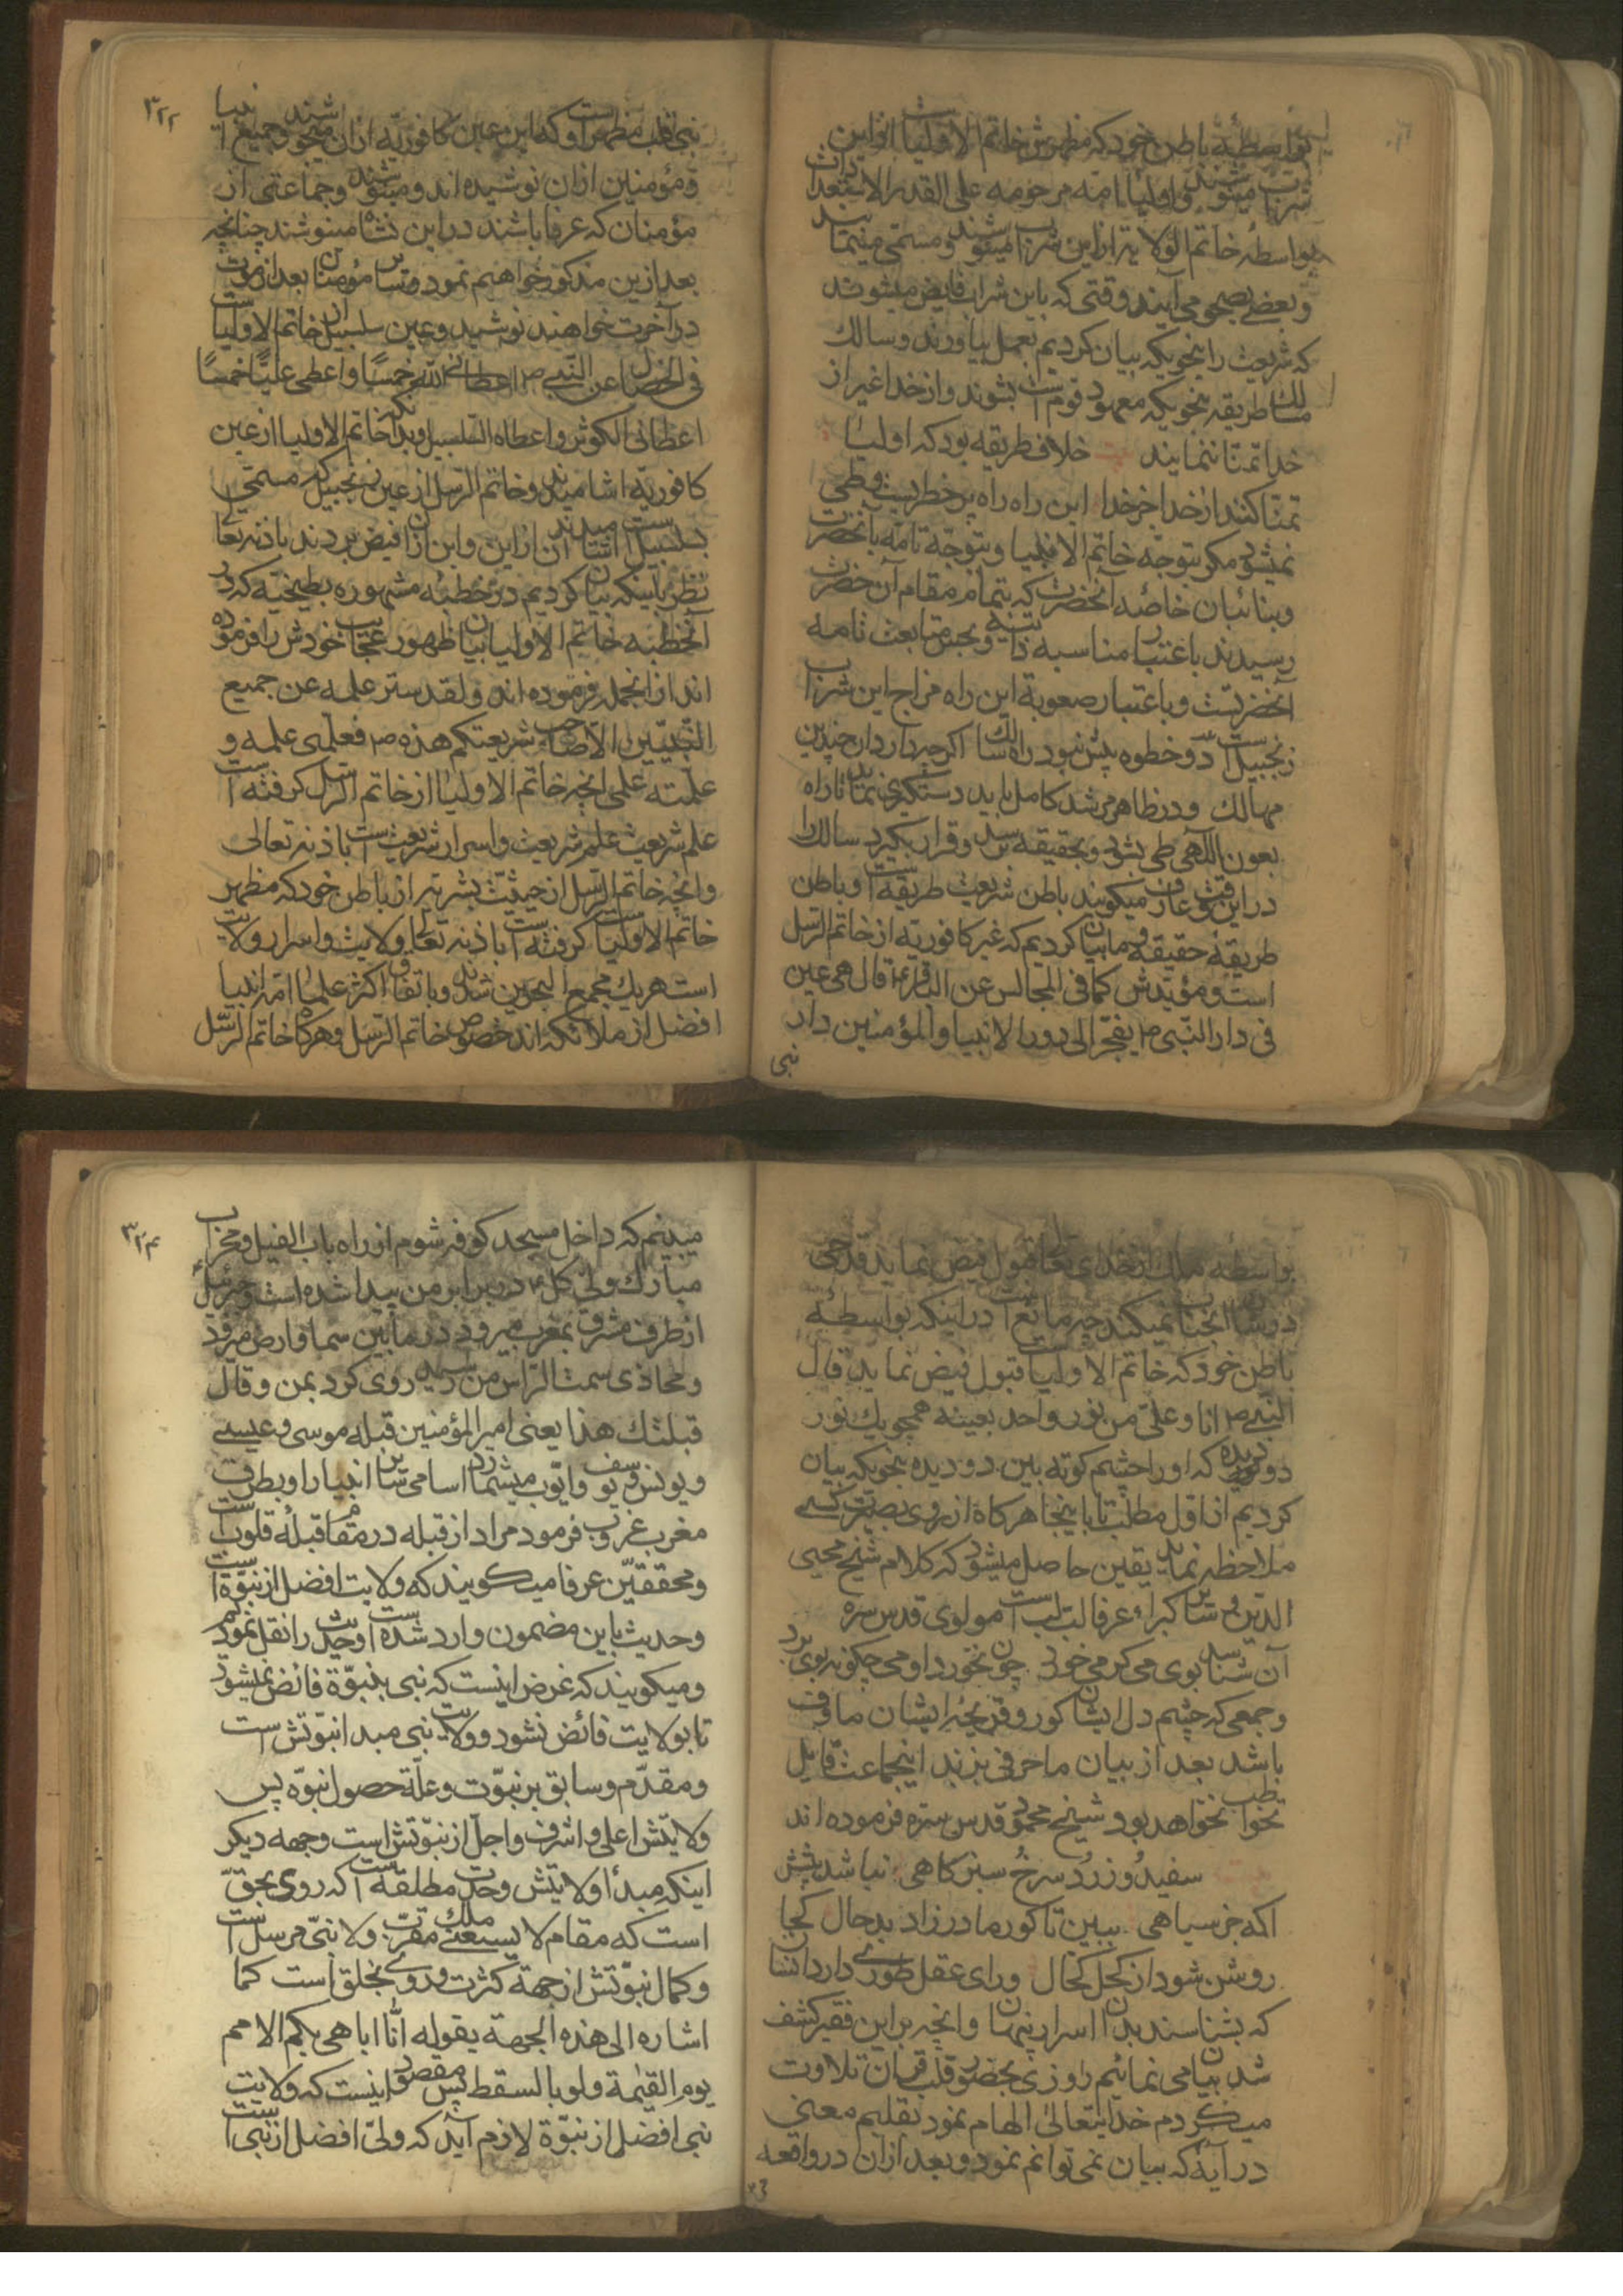 بواسطهٔ باطن خود که مظهرش خاتم الاولیا است ازین
شراب مینوشند و اولیا امهٔ مرحومه علی القدر الاستعدات
بواسطهٔ خاتم الولایه ازین شراب مینوشند و مستی مینمایند
و بعضی بصحو می آیند وقتی که باین شراب فایض میشوند
که شریعت را بنحویکه بیان کردیم بعمل بیاورند و سالک
مسالک طریقه بنحویکه معهود قوم است بشوند و از خدا غیر از
خدا تمنا ننمایند خلاف طریقه بود که اولیا
تمنا کنند از خدا جز خدا این راه راه پر خطریست و طی
نمیشود مکر بتوجه خاتم الانبیا و بتوجه تامه بانحضرت
و بنائبان خاصه آنحضرت که بتمام مقام آن حضرت
رسیدند باعتبار مناسبه ذاتیه و بحسن متابعت تامه
آنحضرتست و باعتبار صعوبة این راه مزاج این شراب
زنجبیل است دو خطوه بیش نبود راه سالک اکرچه دارد آن چندین
مهالک و در ظاهر مرشد کامل باید دستکیری نماید تا راه
بعون اللهی طی بشود و بحقیقه برسد و قرار بکیرد سالک را
در این وقت عارف میکویند باطن شریعت طریقه است و باطن
طریقهٔ حقیقه و ما بیان کردیم که غیر کافوریه از خاتم الرسل
است و مؤیدش کما فی المجالس عن الباقر ع قال هی عین
فی دار النبی ص یفجر الی دور الانبیا و المؤمنین دار
نبی
۳۲۲
نبی قلب مظهر او است که این عین کافوریه ازان میجوشند و جمیع انبیا
و مؤمنین ازان نوشیده اند و مینوشند و جماعتی از
مؤمنان که عرفا باشند در این نشأ مینوشند چنانچه
بعد ازین مذکور خواهیم نمود و سایر مؤمنان بعد از موت
در آخرت خواهند نوشید و عین سلسبیل از خاتم الاولیا است
فی الخصال عن النبی ص اعطانی الله خمسًا و اعطی علیًا خمسًا
اعطانی الکوثر و اعطاه السلسبیل و بدانکه خاتم الاولیا از عین
کافوریه اشامیدند و خاتم الرسل از عین زنجبیل که مسمی
بسلسبیل است اشامیدند آن از این و این ازان فیض بردند باذنه تعالی
نظر باینکه بیان کردیم در خطبهٔ مشهوره بطیخیه که در
آنخطبه خاتم الاولیا بیان ظهور عجایب خودش را فرموده
اند از انجمله فرموده اند و لقد ستر علمه عن جمیع
النبیین الا صاحب شریعتکم هذه ص فعلمنی علمه و
علمته علمی انچه خاتم الاولیا از خاتم الرسل کرفته است
علم شریعت علم شریعت و اسرار شریعت است باذنه تعالی
و انچه خاتم الرسل از حیثیت بشریه از باطن خود که مظهر
خاتم الاولیا است کرفته است باذنه تعالی ولایت و اسرار ولایت
است هریک مجمع البحرین شدند و باتفاق اکثر علمأ امه انبیا
افضل از ملائکه اند خصوص خاتم الرسل و هرکاه خاتم الرسل
بواسطهٔ ملک از خدای تعالی قبول فیض نماید قدحی
در شأن انجناب نمیکند چه مانع است در اینکه بواسطهٔ
باطن خود که خاتم الاولیا است قبول فیض نماید قال
النبی ص انا و علی من نور واحد بعینه همچو یک نور
دو دیده که او را چشم کوته بین دو دیده بنحویکه بیان
کردیم از اول مطلب تا باینجا هرکاه از روی بصیرت کسی
ملاحظه نماید یقین حاصل میشود که کلام شیخ محیی
الدین و سایر کبراء عرفا لب لب است مولوی قدس سره
آن شناسد بوی می کو می خورد چون نخورد او می چکونه بوی برد
و جمعی که چشم دل ایشان کور و قریحهٔ ایشان ماوف
باشد بعد از بیان ما حرفی بزنند اینجماعت قابل
خطاب نخواهد بود شیخ محمود قدس سره فرموده اند
سفید و زرد و سرخ و سبز کاهی نباشد پیش
اکمه جز سیاهی ببین تا کور مادرزاد بدحال کجا
روشن شود از کحل کحال ورای عقل طوری دارد انسان
که بشناسد بدان اسرار پنهان و انچه بر این فقیر کشف
شد بیان می نمائیم روزی بحضور قلب قرآن تلاوت
میکردم خدایتعالی الهام نمود بقلبم معنی
در آیه که بیان نمی توانم نمود و بعد ازان در واقعه
۳۲۴
میبینم که داخل مسجد کوفه شوم از راه باب الفیل و محراب
مبارک ولی کل ص در برابر من پیدا شده است و جبرئیل
از طرف مشرق بمغرب میرود در مابین سما و ارض میرود
و محاذی سمت الراس من رسید روی کرد بمن و قال
قبلتک هذا یعنی امیر المؤمنین قبلهٔ موسی و عیسی
و یونس و یوسف و ایوب میشمارد اسامی سایر انبیا را و بطرف
مغرب غروب فرمود مراد از قبله در مقام قبلهٔ قلوب است
و محققین عرفا میکویند که ولایت افضل از نبوة است
و حدیث باین مضمون وارد شده است و حدیث را نقل نمودیم
و میکویند که غرض اینست که نبی بنبوة فائض نمیشود
تا بولایت فائض نشود و ولایت نبی مبدأ نبوتش است
و مقدم و سابق بر نبوت و علة حصول نبوة پس
ولایتش اعلی و اشرف و اجل از نبوتش است وجهه دیکر
اینکه مبدأ ولایتش وحدت مطلقه است که روی بحق
است که مقام لا یسعنی ملک مقرب و لا نبی مرسل است
و کمال نبوتش از جهة کثرت و روی بخلق است کما
اشاره الی هذه الجهة بقوله انا اباهی بکم الامم
یوم القیمة و لو بالسقط پس مقصود اینست که ولایت
نبی افضل از نبوة لازم آید که ولی افضل از نبی است